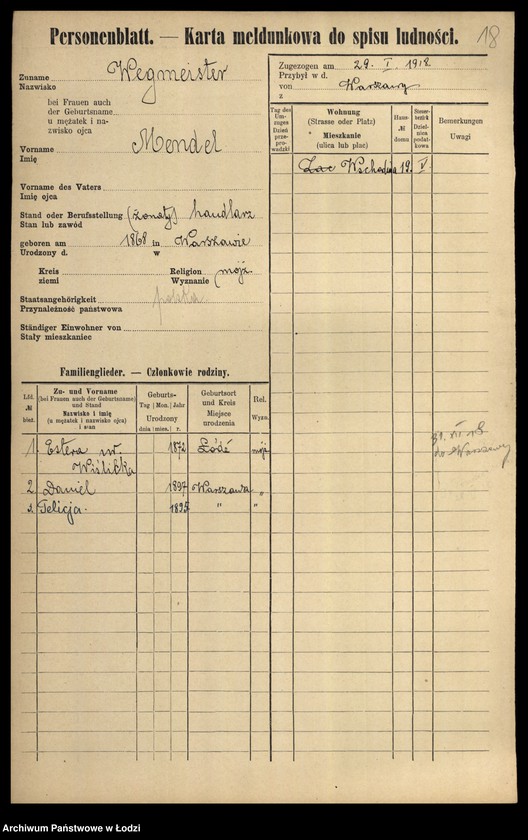 Personenblatt. — Karta meldunkowa do spisu ludności.
18
Zuname
Nazwisko
Wegmeister
bei Frauen auch
der Geburtsname
u mężatek i na-
zwisko ojca
Vorname
Imię
Mendel
Vorname des Vaters
Imię ojca
Stand oder Berufsstellung (żonaty) handlarz
Stan lub zawód
geboren am 1868 in Warszawie
Urodzony d. w
Kreis Religion mojż.
ziemi Wyznanie
Staatsangehörigkeit polska
Przynależność państwowa
Ständiger Einwohner von
Stały mieszkaniec
Zugezogen am 29. I. 1918
Przybył w d.
von Warszawy
z
Tag des Um-zuges
Dzień prze-prowadzki
Wohnung
(Strasse oder Platz)
Mieszkanie
(ulica lub plac)
Haus-
№
domu
Steuer-bezirk
Dziel-nica podat-kowa
Bemerkungen
Uwagi
Wschodnia 19. V.
31. XII 18
do Warszawy
Familienglieder. — Członkowie rodziny.
Lfd.
№
bież.
Zu- und Vorname
(bei Frauen auch der Geburtsname)
und Stand
Nazwisko i imię
(u mężatek nazwisko ojca)
i stan
Geburts-
Tag | Mon. | Jahr
Urodzony
dnia | mies. | r.
Geburtsort
und Kreis
Miejsce
urodzenia
Rel.
Wyzn.
1. Estera ur. 1872 Łódź mojż.
Wiślicka
2. Daniel 1897 Warszawa "
3. Felicja. 1895 " "
Archiwum Państwowe w Łodzi